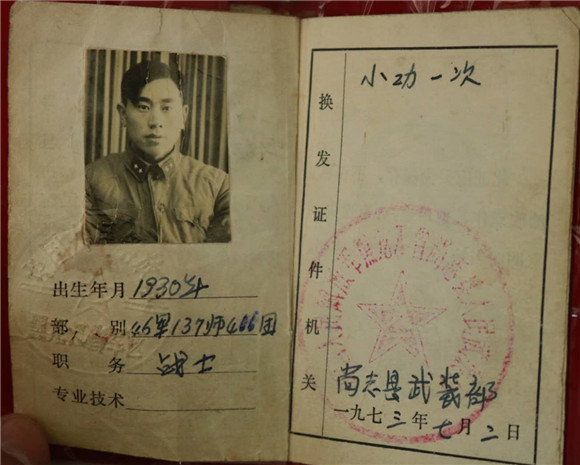 出生年月 1930年
部、别 46军137师466团
职务 战士
专业技术
小功一次
换发证件机关
尚志县武装部
一九七三年七月二日